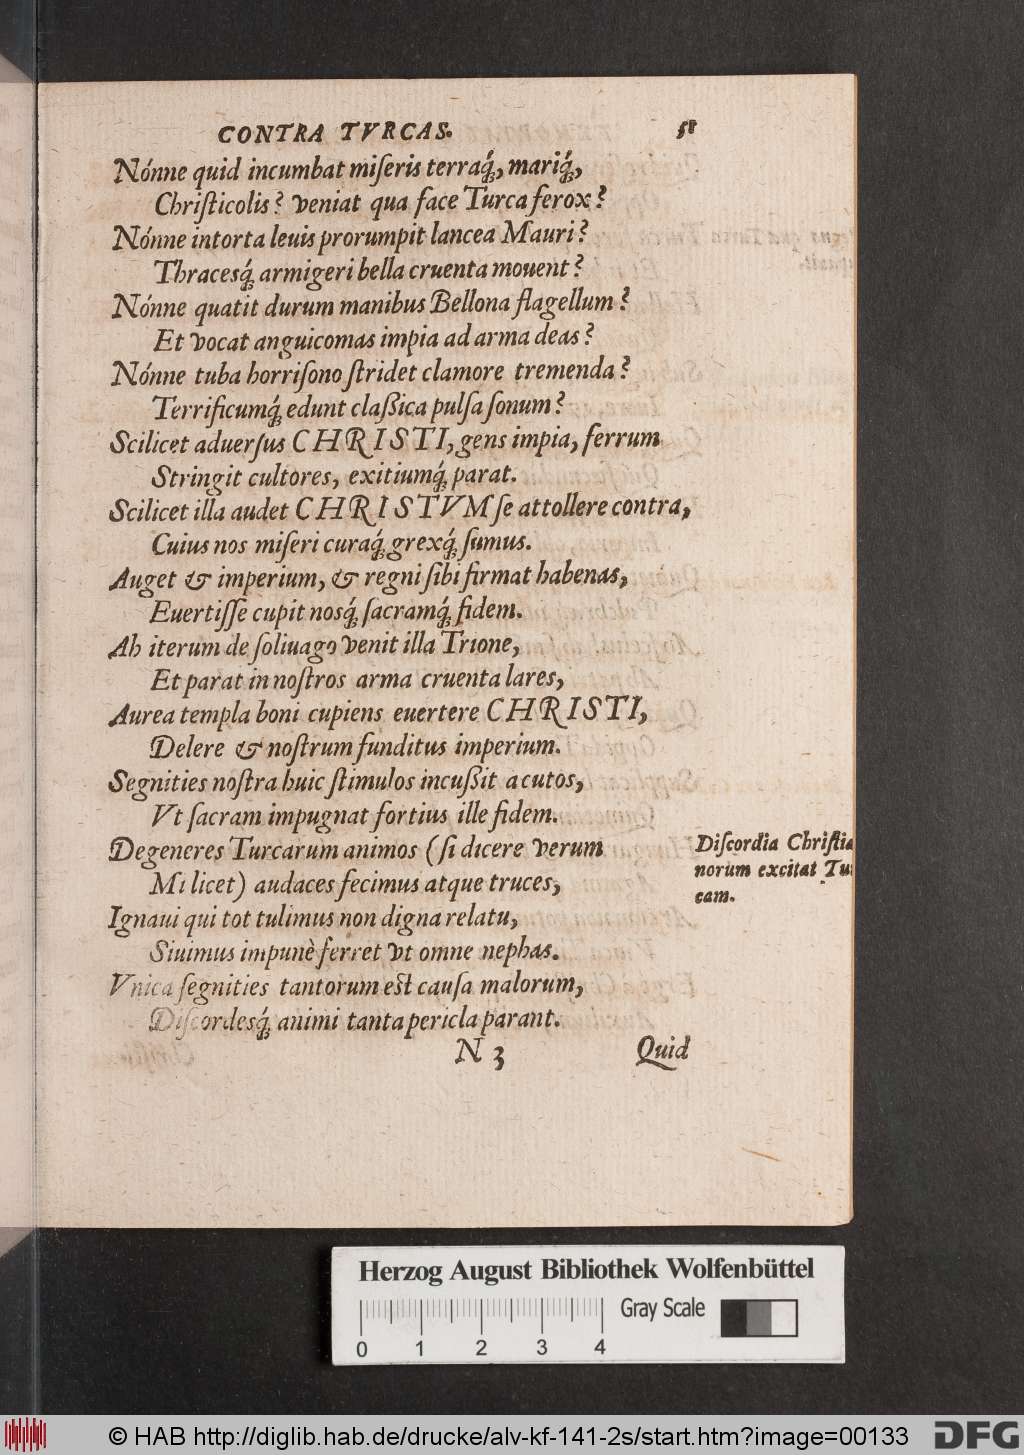 CONTRA TVRCAS. 51
Nónne quid incumbat miſeris terraq́;, mariq́;,
Chriſticolis? veniat qua face Turca ferox?
Nónne intorta leuis prorumpit lancea Mauri?
Thracesq́; armigeri bella cruenta mouent?
Nónne quatit durum manibus Bellona flagellum?
Et vocat anguicomas impia ad arma deas?
Nónne tuba horriſono ſtridet clamore tremenda?
Terrificumq́; edunt claßica pulſa ſonum?
Scilicet aduerſus CHRISTI, gens impia, ferrum
Stringit cultores, exitiumq́; parat.
Scilicet illa audet CHRISTVM ſe attollere contra,
Cuius nos miſeri curaq́; grexq́; ſumus.
Auget & imperium, & regni ſibi firmat habenas,
Euertiſſe cupit nosq́; ſacramq́; fidem.
Ah iterum de ſoliuago venit illa Trione,
Et parat in noſtros arma cruenta lares,
Aurea templa boni cupiens euertere CHRISTI,
Delere & noſtrum funditus imperium.
Segnities noſtra huic ſtimulos incußit acutos,
Vt ſacram impugnat fortius ille fidem.
Degeneres Turcarum animos (ſi dicere verum
Mi licet) audaces fecimus atque truces,
Ignaui qui tot tulimus non digna relatu,
Siuimus impunè ferret vt omne nephas.
Vnica ſegnities tantorum eſt cauſa malorum,
Diſcordesq́; animi tanta pericla parant.
N 3 Quid
Diſcordia Chriſtia
norum excitat Tu
cam.
Herzog August Bibliothek Wolfenbüttel
Gray Scale
0 1 2 3 4
© HAB http://diglib.hab.de/drucke/alv-kf-141-2s/start.htm?image=00133
DFG